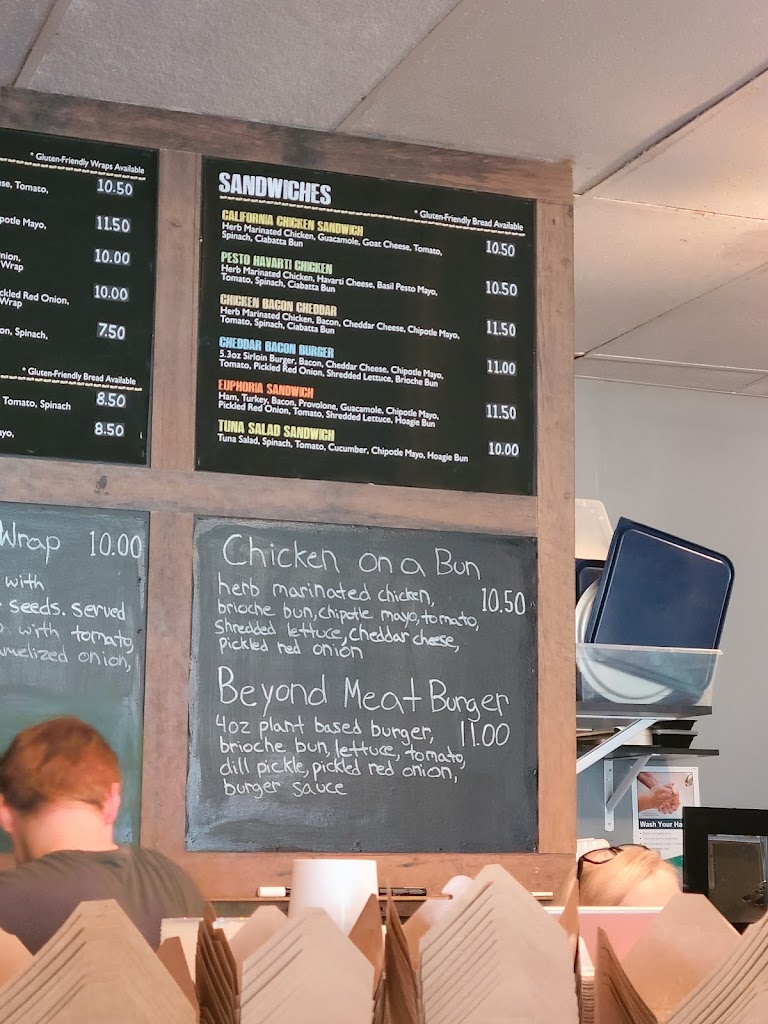 * Gluten-Friendly Wraps Available
se, Tomato, 10.50
potle Mayo, 11.50
nion, 10.00
Wrap
ckled Red Onion, 10.00
Wrap
on, Spinach, 7.50
* Gluten-Friendly Bread Available
Tomato, Spinach 8.50
ayo, 8.50
SANDWICHES
* Gluten-Friendly Bread Available
CALIFORNIA CHICKEN SANDWICH
Herb Marinated Chicken, Guacamole, Goat Cheese, Tomato, 10.50
Spinach, Ciabatta Bun
PESTO HAVARTI CHICKEN
Herb Marinated Chicken, Havarti Cheese, Basil Pesto Mayo, 10.50
Tomato, Spinach, Ciabatta Bun
CHICKEN BACON CHEDDAR
Herb Marinated Chicken, Bacon, Cheddar Cheese, Chipotle Mayo, 11.50
Tomato, Spinach, Ciabatta Bun
CHEDDAR BACON BURGER
5.3oz Sirloin Burger, Bacon, Cheddar Cheese, Chipotle Mayo, 11.00
Tomato, Pickled Red Onion, Shredded Lettuce, Brioche Bun
EUPHORIA SANDWICH
Ham, Turkey, Bacon, Provolone, Guacamole, Chipotle Mayo, 11.50
Pickled Red Onion, Tomato, Shredded Lettuce, Hoagie Bun
TUNA SALAD SANDWICH
Tuna Salad, Spinach, Tomato, Cucumber, Chipotle Mayo, Hoagie Bun 10.00
Wrap 10.00
with
seeds. served
with tomato,
amelized onion,
Chicken on a Bun
herb marinated chicken, 10.50
brioche bun, chipotle mayo, tomato,
shredded lettuce, cheddar cheese,
pickled red onion
Beyond Meat Burger
4oz plant based burger, 11.00
brioche bun, lettuce, tomato,
dill pickle, pickled red onion,
burger sauce
Wash Your Ha